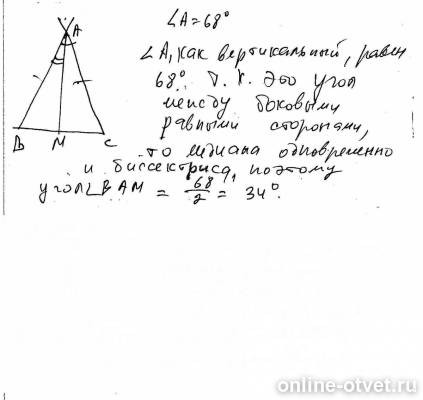 ∠A = 68°
∠A, как вертикальный, равен
68°. Т. к. это угол
между боковыми
равными сторонами,
то медиана одновременно
и биссектриса, поэтому
угол ∠BAM = 68/2 = 34°.
A
B M C
online-otvet.ru